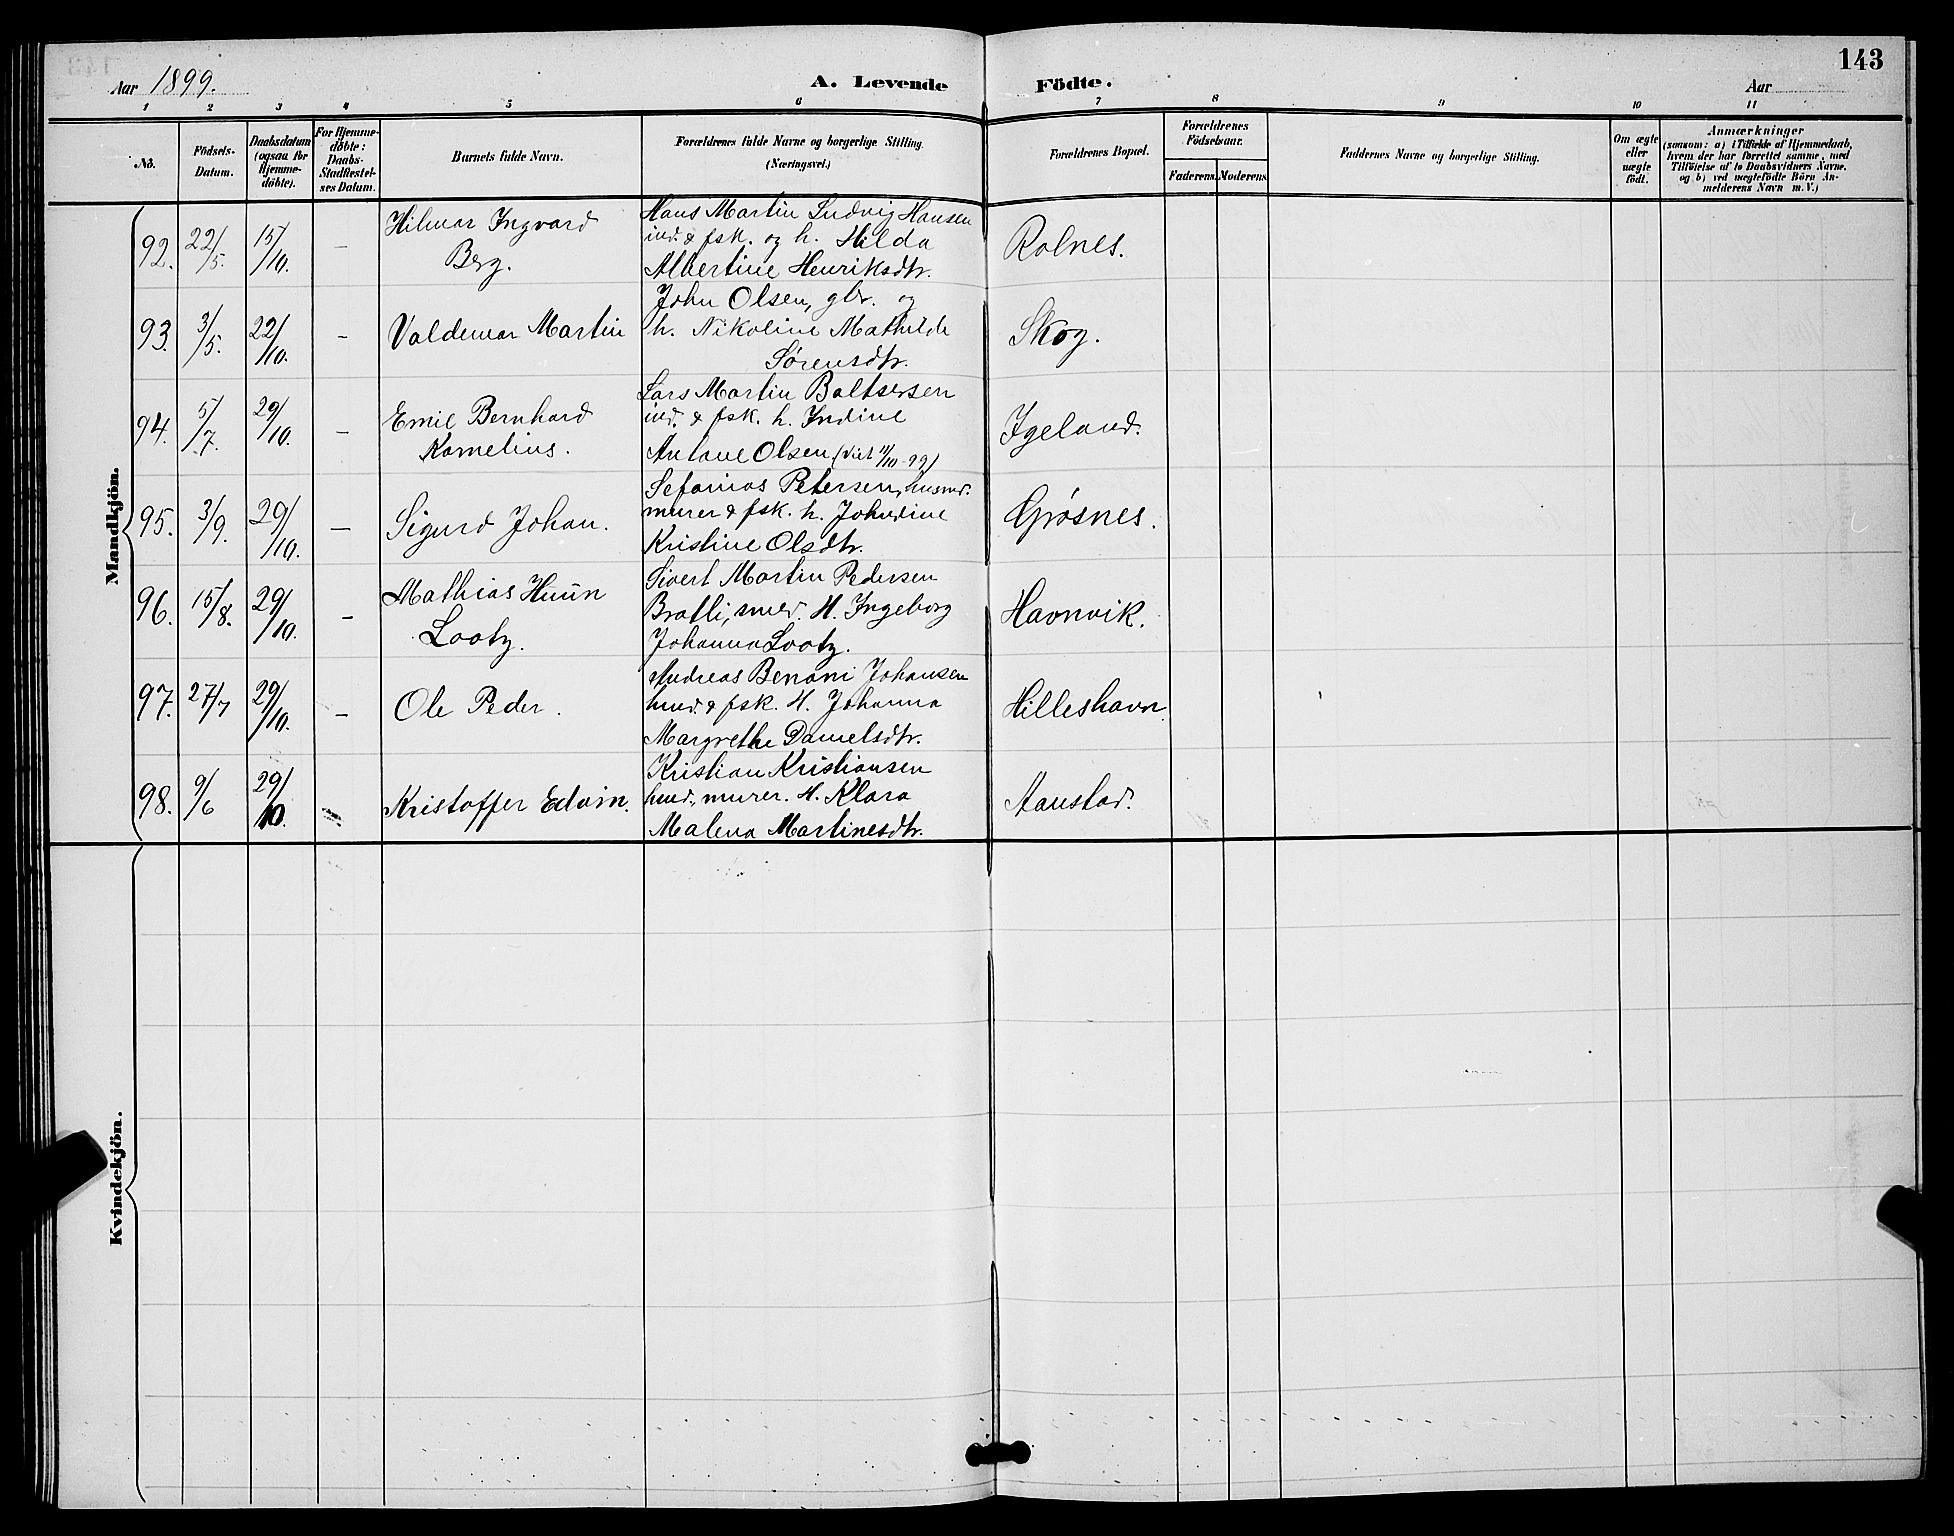 143
Aar 1899.
A. Levende
Födte.
Aar
1 2 3 4 5 6 7 8 9 10 11
No.
Födsels-
Datum.
Daabsdatum
(ogsaa for
Hjemme-
døbte).
For Hjemme-
døbte:
Daabs-
Stadfæstel-
ses Datum.
Barnets fulde Navn.
Forældrenes fulde Navne og borgerlige Stilling.
(Næringsvei.)
Forældrenes Bopæl.
Forældrenes
Fødselsaar.
Faderens. Moderens.
Faddernes Navne og borgerlige Stilling.
Om ægte
eller
uægte
født.
Anmærkninger
(saasom: a) i Tilfælde af Hjemmedaab,
hvem der har forrettet samme, med
Tilføielse af to Daabsvidners Navne,
og b) ved uægtefødte Børn An-
melderens Navn m. V.)
Mandkjön.
92. 22/5. 15/10. –
Hilmar Ingvard
Berg.
Hans Martin Ludvig Hansen
ind. & fsk. og h. Hilda
Albertine Henriksdtr.
Rolnes.
93. 3/5. 22/10. –
Valdemar Martin
John Olsen, gbr. og
h. Nikoline Mathilde
Sørensdtr.
Skog.
94. 5/7. 29/10. –
Emil Bernhard
Kornelius.
Lars Martin Baltsersen
ind. & fsk. h. Indine
Antone Olsen (viet 11/10-99)
Igeland.
95. 3/9. 29/10. –
Sigurd Johan.
Sefanias Petersen, husmd.
murer & fsk. h. Johndine
Kristine Olsdtr.
Grøsnes.
96. 15/8. 29/10. –
Mathias Huun
Lootz.
Sivert Martin Pedersen
Bratli, smed. H. Ingeborg
Johanna Lootz.
Havnvik.
97. 27/7 29/10. –
Ole Peder.
Andreas Benoni Johansen
hmd. & fsk. H. Johanna
Margrethe Danielsdtr.
Hilleshavn
98. 9/6 29/10.
Kristoffer Edvin.
Kristian Kristiansen
hmd., murer. H. Klara
Malena Martinesdtr.
Aanstad.
Kvindekjön.